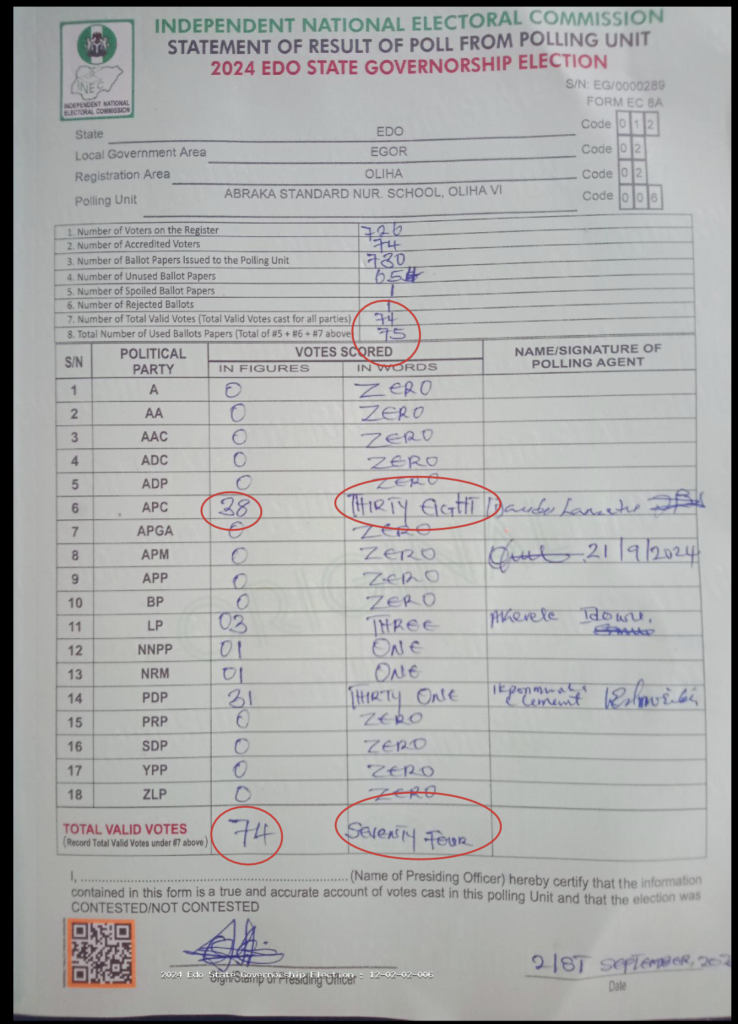 INDEPENDENT NATIONAL ELECTORAL COMMISSION
STATEMENT OF RESULT OF POLL FROM POLLING UNIT
2024 EDO STATE GOVERNORSHIP ELECTION
INEC
INDEPENDENT NATIONAL
ELECTORAL COMMISSION
S/N: EG/0000289
FORM EC 8A
State EDO Code 0 1 2
Local Government Area EGOR Code 0 2
Registration Area OLIHA Code 0 2
Polling Unit ABRAKA STANDARD NUR. SCHOOL, OLIHA VI Code 0 0 6
1. Number of Voters on the Register 726
2. Number of Accredited Voters 74
3. Number of Ballot Papers Issued to the Polling Unit 730
4. Number of Unused Ballot Papers 654
5. Number of Spoiled Ballot Papers 1
6. Number of Rejected Ballots 1
7. Number of Total Valid Votes (Total Valid Votes cast for all parties) 74
8. Total Number of Used Ballots Papers (Total of #5 + #6 + #7 above 75
S/N POLITICAL PARTY VOTES SCORED NAME/SIGNATURE OF POLLING AGENT
IN FIGURES IN WORDS
1 A 0 ZERO
2 AA 0 ZERO
3 AAC 0 ZERO
4 ADC 0 ZERO
5 ADP 0 ZERO
6 APC 38 THIRTY AGHT
7 APGA 0 ZERO
8 APM 0 ZERO 21/9/2024
9 APP 0 ZERO
10 BP 0 ZERO
11 LP 03 THREE Akerele Idowu.
12 NNPP 01 ONE
13 NRM 01 ONE
14 PDP 31 THIRTY ONE Clement
15 PRP 0 ZERO
16 SDP 0 ZERO
17 YPP 0 ZERO
18 ZLP 0 ZERO
TOTAL VALID VOTES 74 SEVENTY FOUR
(Record Total Valid Votes under #7 above)
I, ................................................(Name of Presiding Officer) hereby certify that the information
contained in this form is a true and accurate account of votes cast in this polling Unit and that the election was
CONTESTED/NOT CONTESTED
21ST SEPTEMBER, 202
2024 Edo State Governorship Election : 12-02-02-006
Sign/Stamp of Presiding Officer
Date